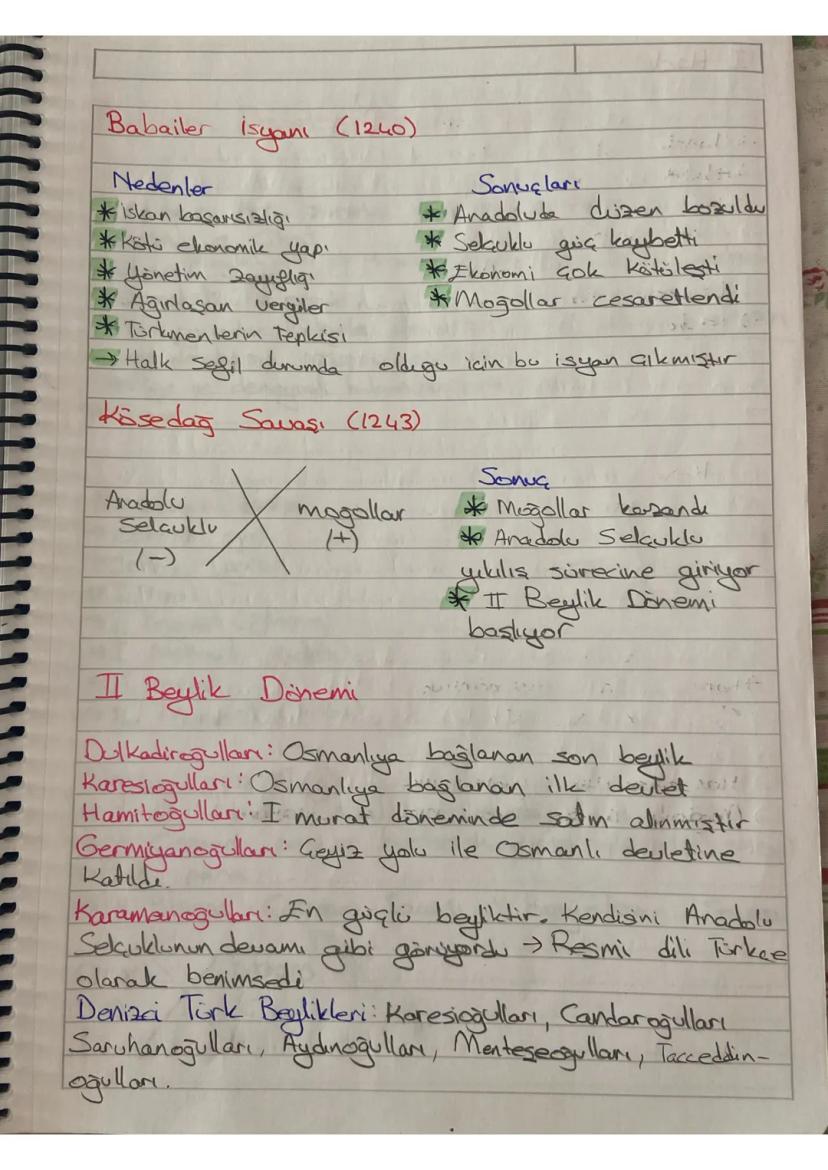 Babailer isyanı (1240)
Nedenler
* iskan başarısızlığı
* Kötü ekonomik yapı
* Yönetim zayıflığı
* Ağırlaşan vergiler
* Türkmenlerin tepkisi
→ Halk sefil durumda olduğu için bu isyan çıkmıştır
Sonuçları
* Anadoluda düzen bozuldu
* Selçuklu güç kaybetti
* Ekonomi çok kötüleşti
* Moğollar cesaretlendi
Kösedağ Savaşı (1243)
Anadolu
Selçuklu
(-)
moğollar
(+)
Sonuç
* Moğollar kazandı
* Anadolu Selçuklu
yıkılış sürecine giriyor
* II Beylik Dönemi
başlıyor
II Beylik Dönemi
Dulkadiroğulları: Osmanlıya bağlanan son beylik
Karesioğulları: Osmanlıya bağlanan ilk devlet
Hamitoğulları: I murat döneminde satın alınmıştır
Germiyanoğulları: Çeyiz yolu ile Osmanlı devletine
Katıldı.
Karamanoğulları: En güçlü beyliktir. Kendisini Anadolu
Selçuklunun devamı gibi görüyordu → Resmi dili Türkçe
olarak benimsedi
Denizci Türk Beylikleri: Karesioğulları, Candaroğulları
Saruhanoğulları, Aydınoğulları, Menteşeoğulları, Tacceddin-
oğulları.